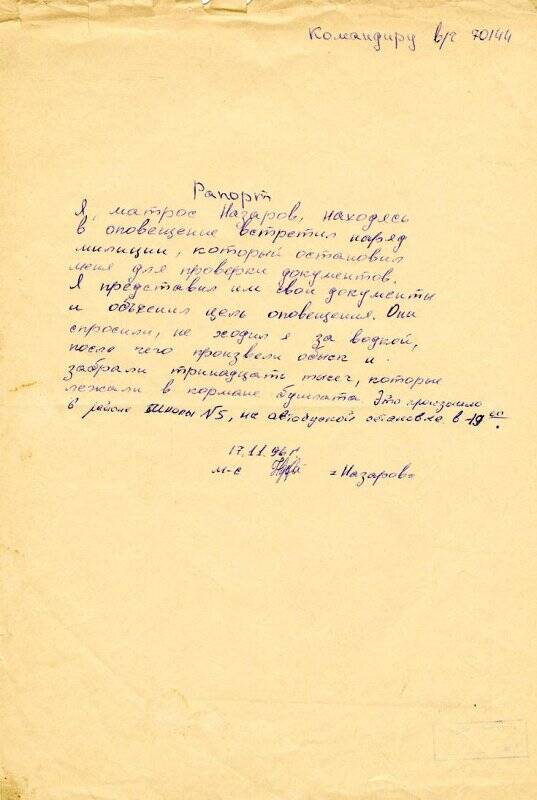 Командиру в/ч 70144
Рапорт
Я, матрос Назаров, находясь
в оповещение встретил наряд
милиции, который остановил
меня для проверки документов.
Я представил им свои документы
и объяснил цель оповещения. Они
спросили, не ходил я за водкой,
после чего произвели обыск и
забрали тринадцать тысяч, которые
лежали в кормане бушлата Это произошло
в районе школы №5, на автобусной остановке в 19
17.11.96 г.
м-с =Назаров=